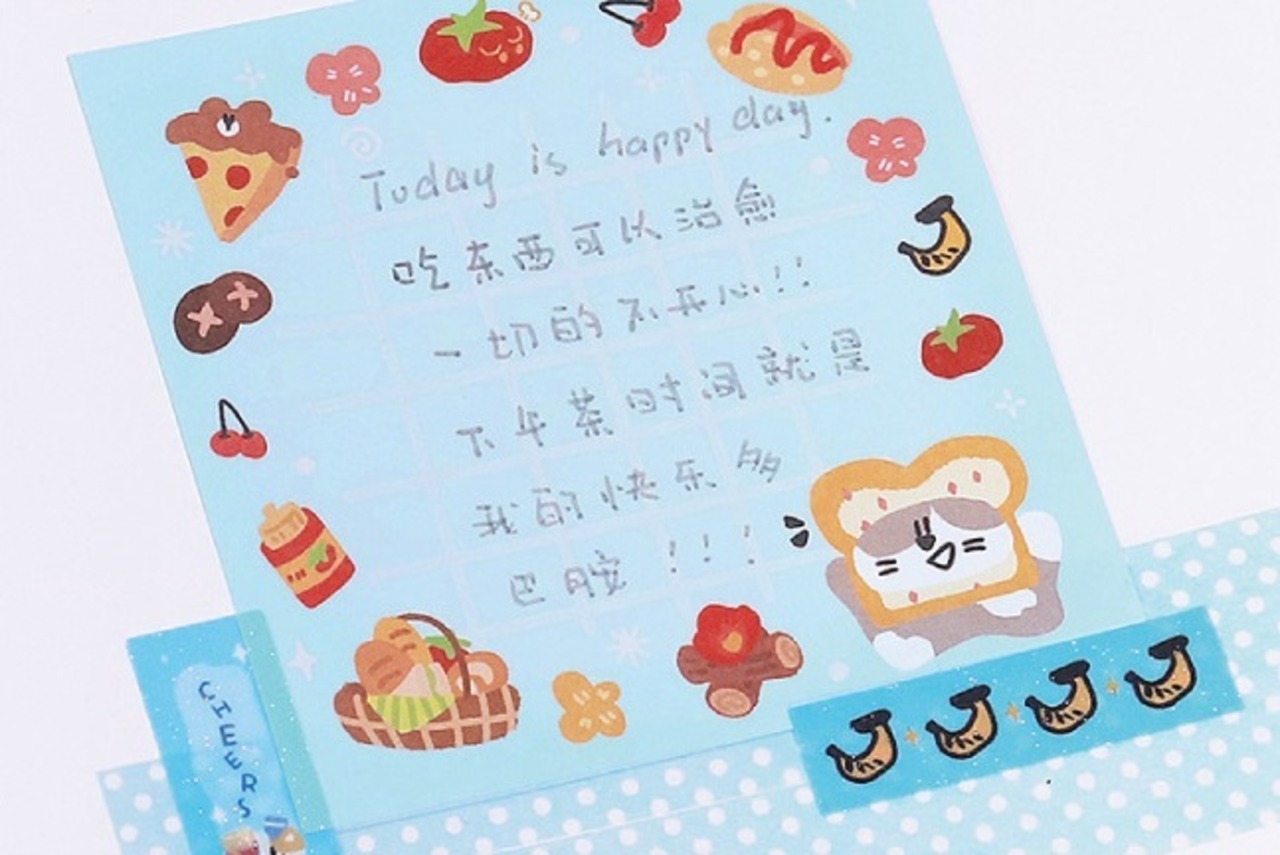 Today is happy day.
吃东西可以治愈
一切的不开心!!
下午茶时间就是
我的快乐多
巴胺!!!
CHEERS